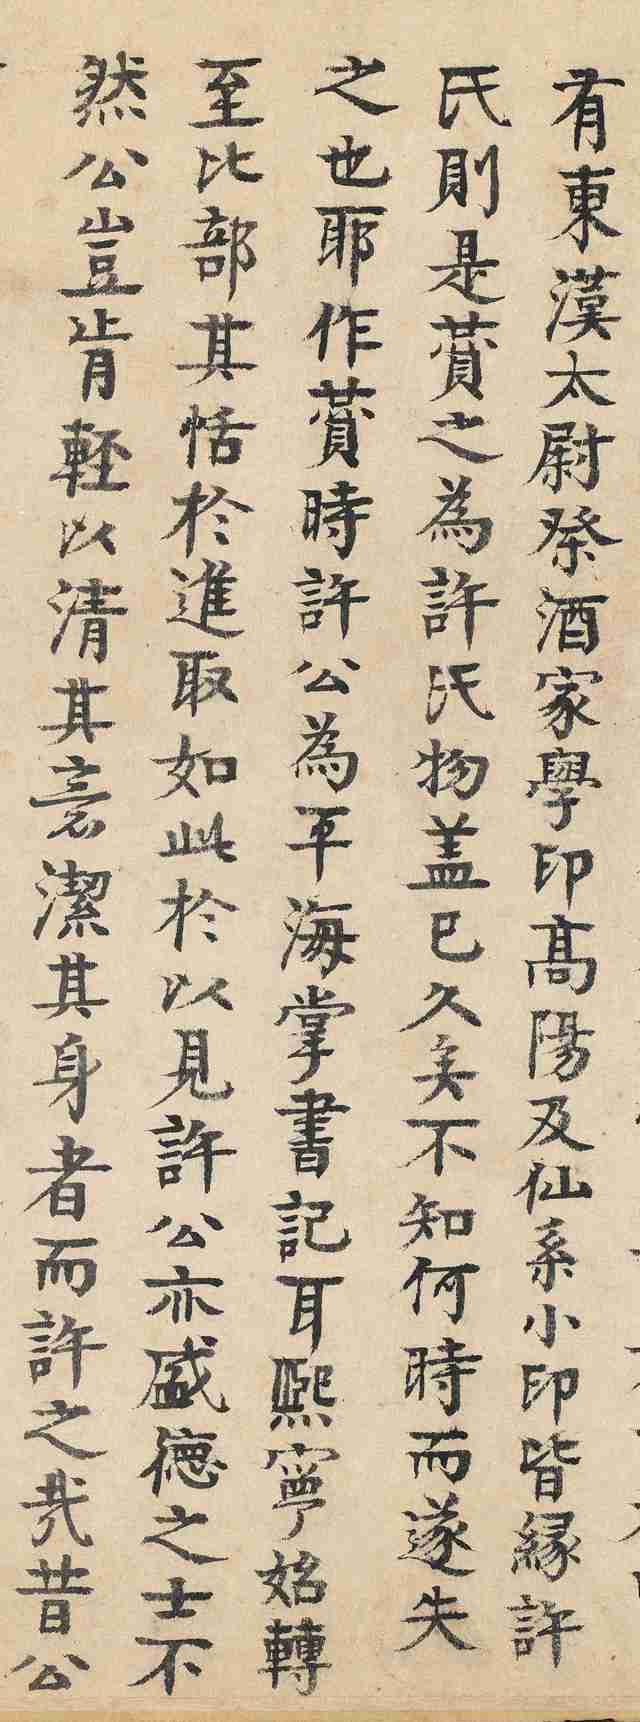 有東漢太尉祭酒家學印高陽及仙系小印皆緣許
氏則是贊之為許氏物蓋已久矣不知何時而遂失
之也耶作贊時許公為平海掌書記耳熙寧始轉
至比部其恬於進取如此於以見許公亦盛德之士不
然公豈肯輕以清其意潔其身者而許之哉昔公